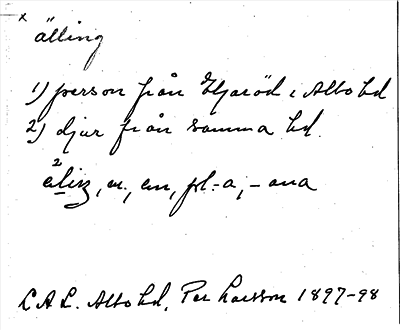 x
älling
1) person från Eljaröd i Albo hd
2) djur från samma hd.
2
eliŋ, m., en, pl. -a, -ana
LAL. Albo hd, Per Larsson 1897-98